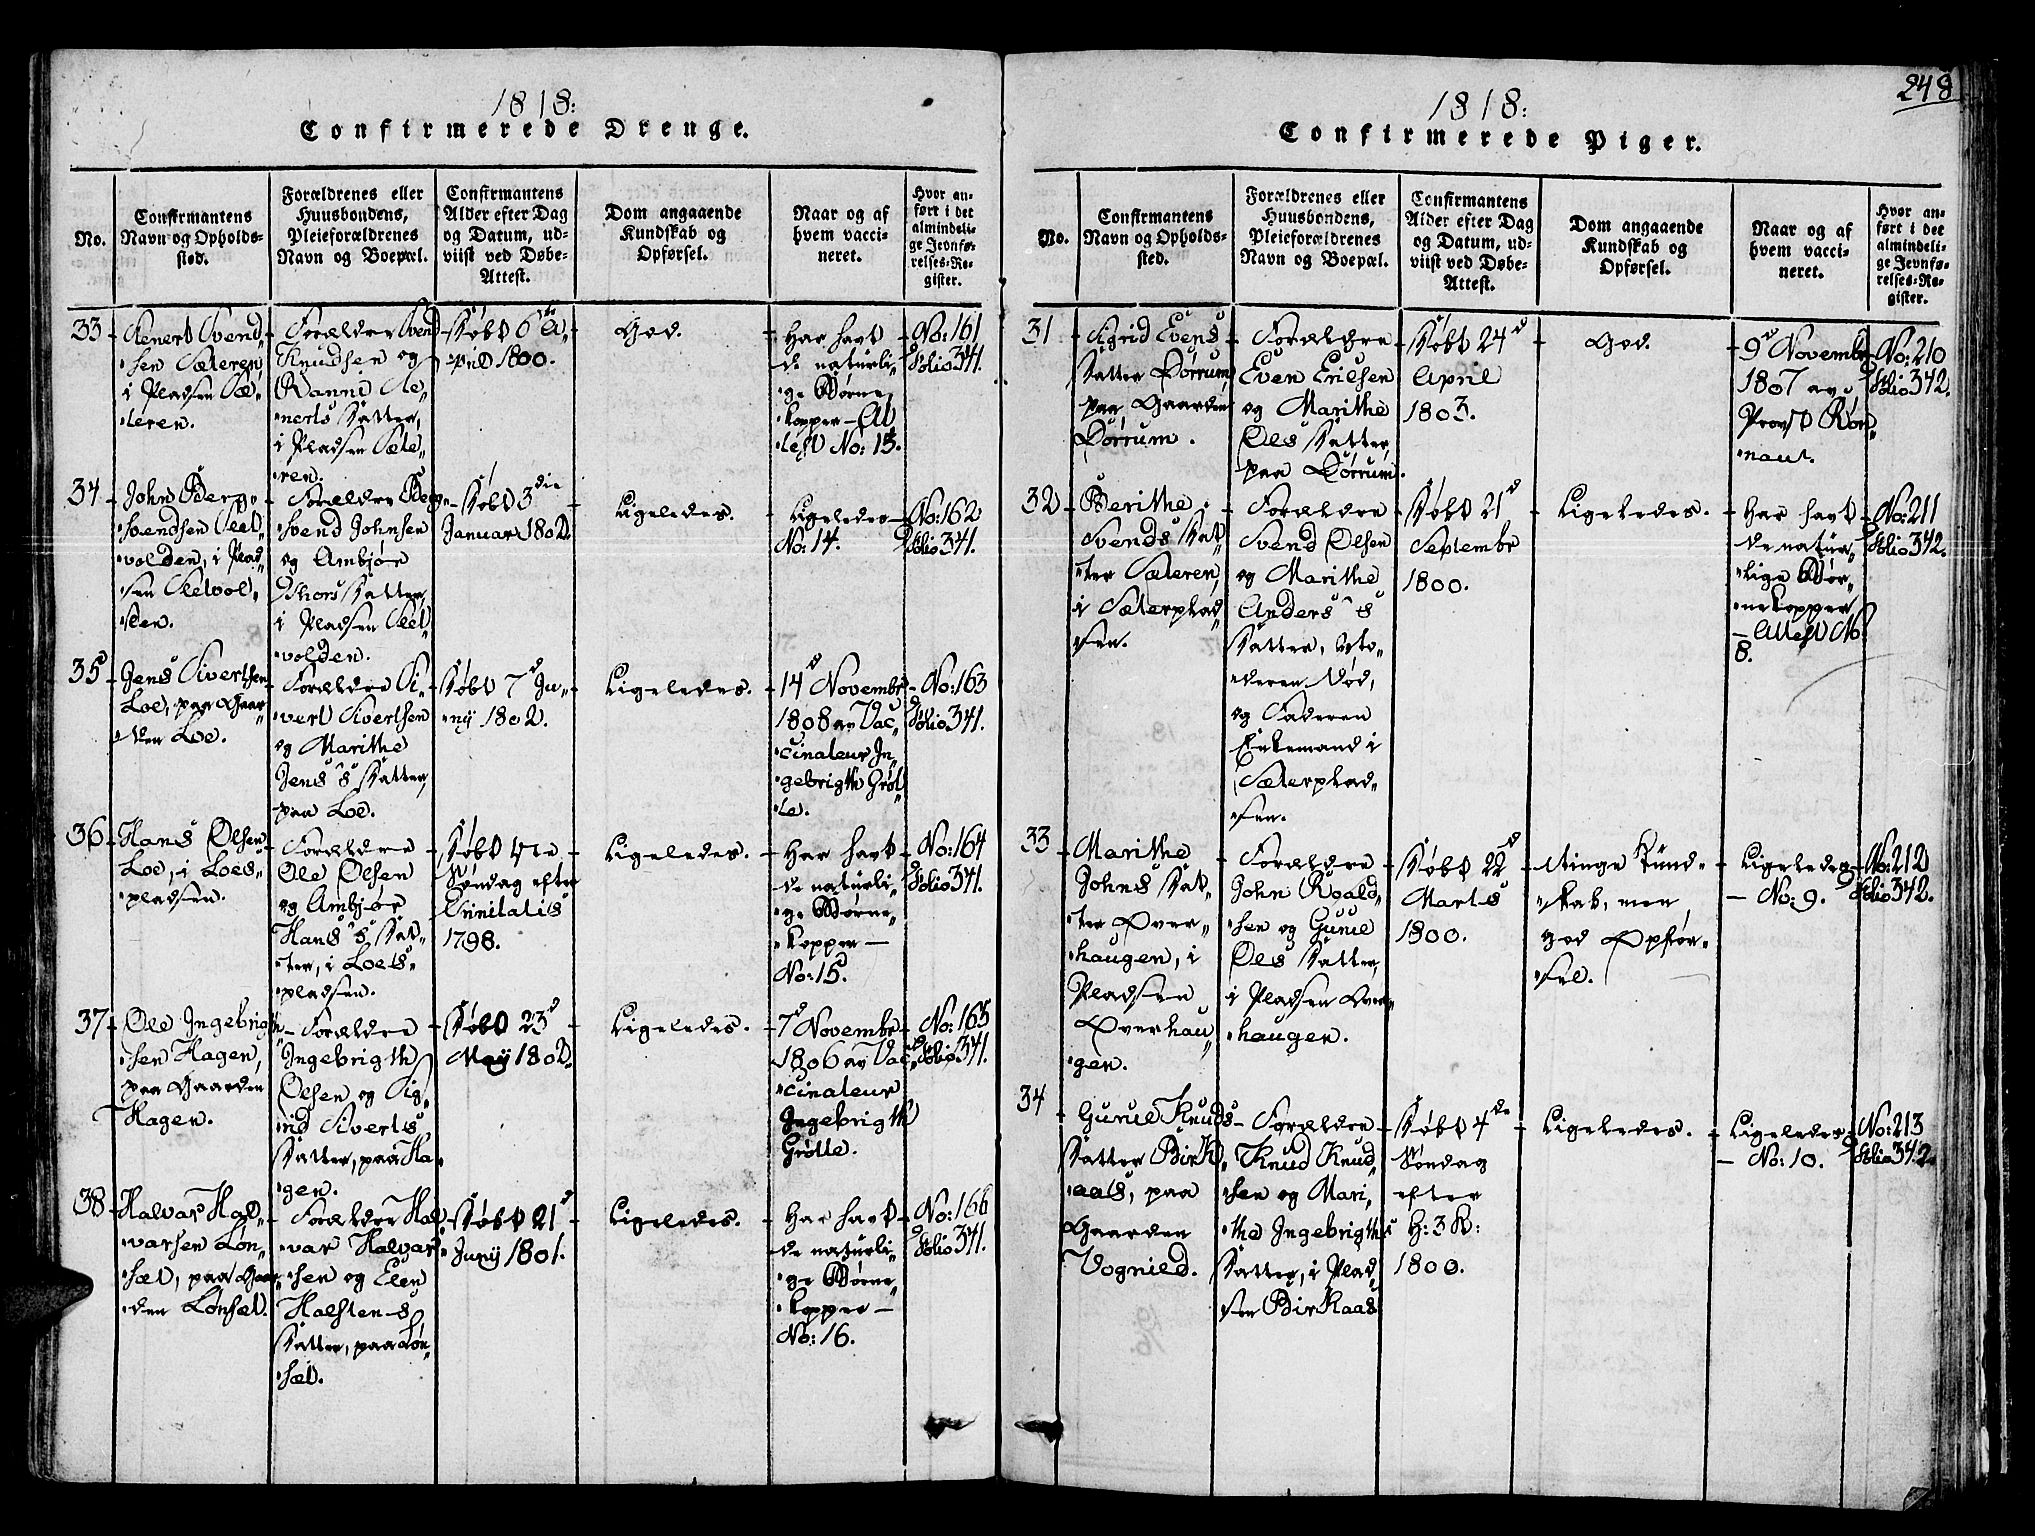 1818:
Confirmerede Drenge.
No.
Confirmantens
Navn og Opholds-
sted.
Forældrenes eller
Huusbondens,
Pleieforældrenes
Navn og Boepæl.
Confirmantens
Alder efter Dag
og Datum, ud-
viist ved Døbe-
Attest.
Dom angaaende
Kundskab og
Opførsel.
Naar og af
hvem vacci-
neret.
Hvor an-
ført i det
almindeli-
ge Jevnfø-
relses-Re-
gister.
33
Svend-
sen Sæteren
i Pladsen Sæ-
teren.
Forældre Svend
Knudsen og
nerts Datter,
i Pladsen Sæte-
ren.
Døbt 6te A-
pril 1800.
God.
Har havt
de naturli-
ge Børne-
kopper - At-
test No: 13.
No: 161
Folio 341.
34
John Berg-
svendsen
volden, i Plad-
sen
den.
Forældre Berg-
svend Johnsen
og Ambjør
Thors Datter,
i Pladsen
volden.
Døbt 3die
Januar 1802.
Ligeledes.
Ligeledes -
No: 14.
No: 162
Folio 341.
35
Jens Sivertsen
Loe, paa Gaar-
den Loe.
Forældre Si-
vert Sivertsen
og Marithe
Jens's Datter,
paa Loe.
Døbt 7d Ju-
nij 1802.
Ligeledes.
14d Novembr
1808 av Vac-
cinateur In-
gebrigth Grøt-
te.
No: 163
Folio 341.
36
Hans Olsen
Loe, i Loes-
pladsen.
Forældre
Ole Olsen
og Ambjør
Hans's Dat-
ter, i Loes-
pladsen.
Døbt 4de
Søndag efter
Trinitatis
1798.
Ligeledes.
Har havt
de naturli-
ge Børne-
kopper -
No: 15.
No: 164
Folio 341.
37
Ole Ingebrigth-
sen Hagen,
paa Gaarden
Hagen.
Forældre
Ingebrigth
Olsen og Sig-
rid Siverts
Datter, paa Ha-
gen.
Døbt 23d
Maij 1802.
Ligeledes.
7d Novembr
1806 av Vac-
cinateur
Ingebrigth
Grøtte.
No: 165
Folio 341.
38
Halvar Hal-
varsen Løn-
sæt, paa Gaar-
den Lønsæt.
Forældre Hal-
var Halvar-
sen og Elen
Halstens
Datter, paa Løn-
sæt.
Døbt 21d
Junij 1801.
Ligeledes.
Har havt
de naturli-
ge Børne-
kopper -
No: 16.
No: 166
Folio 341.
248
1818:
Confirmerede Piger.
No.
Confirmantens
Navn og Opholds-
sted.
Forældrenes eller
Huusbondens,
Pleieforældrenes
Navn og Boepæl.
Confirmantens
Alder efter Dag
og Datum, ud-
viist ved Døbe-
Attest.
Dom angaaende
Kundskab og
Opførsel.
Naar og af
hvem vacci-
neret.
Hvor an-
ført i det
almindeli-
ge Jevnfø-
relses-Re-
gister.
31
Sigrid Evens
Datter Dørrum,
paa Gaarden
Dørrum.
Forældre
Even Ericsen
og Marithe
Ols Datter,
paa Dørrum.
Døbt 24d
April
1803.
God.
9d Novembr
1807 av
Provst Røn-
nau.
No: 210
Folio 342.
32
Berithe
Svends Dat-
ter Sæteren,
i Sæterplad-
sen.
Forældre
Svend Olsen
og Marithe
Anders's
Datter, Mo-
deren død,
og Faderen
Enkemand i
Sæterplad-
sen.
Døbt 21d
Septembr
1800.
Ligeledes.
Har havt
de natur-
lige Bør-
nekopper
- Attest No:
8.
No: 211
Folio 342.
33
Marithe
Johns Dat-
ter Over-
haugen, i
Pladsen
Overhau-
gen.
Forældre
John Roald-
sen og Gurue
Ols Datter,
i Pladsen Over-
haugen.
Døbt 22d
Marts
1800.
Ringe Kund-
skab, men
god Opfør-
sel.
Ligeledes
- No: 9.
No: 212
Folio 342.
34
Gurue Knuds
Datter Birk-
aas, paa
Gaarden
Vognild.
Forældre
Knud Knud-
sen og Mari-
the Ingebrigths
Datter, i Plad-
sen Birkaas
Døbt 4de
Søndag
efter
H: 3 K:
1800.
Ligeledes.
Ligeledes
- No: 10.
No: 213
Folio 342.